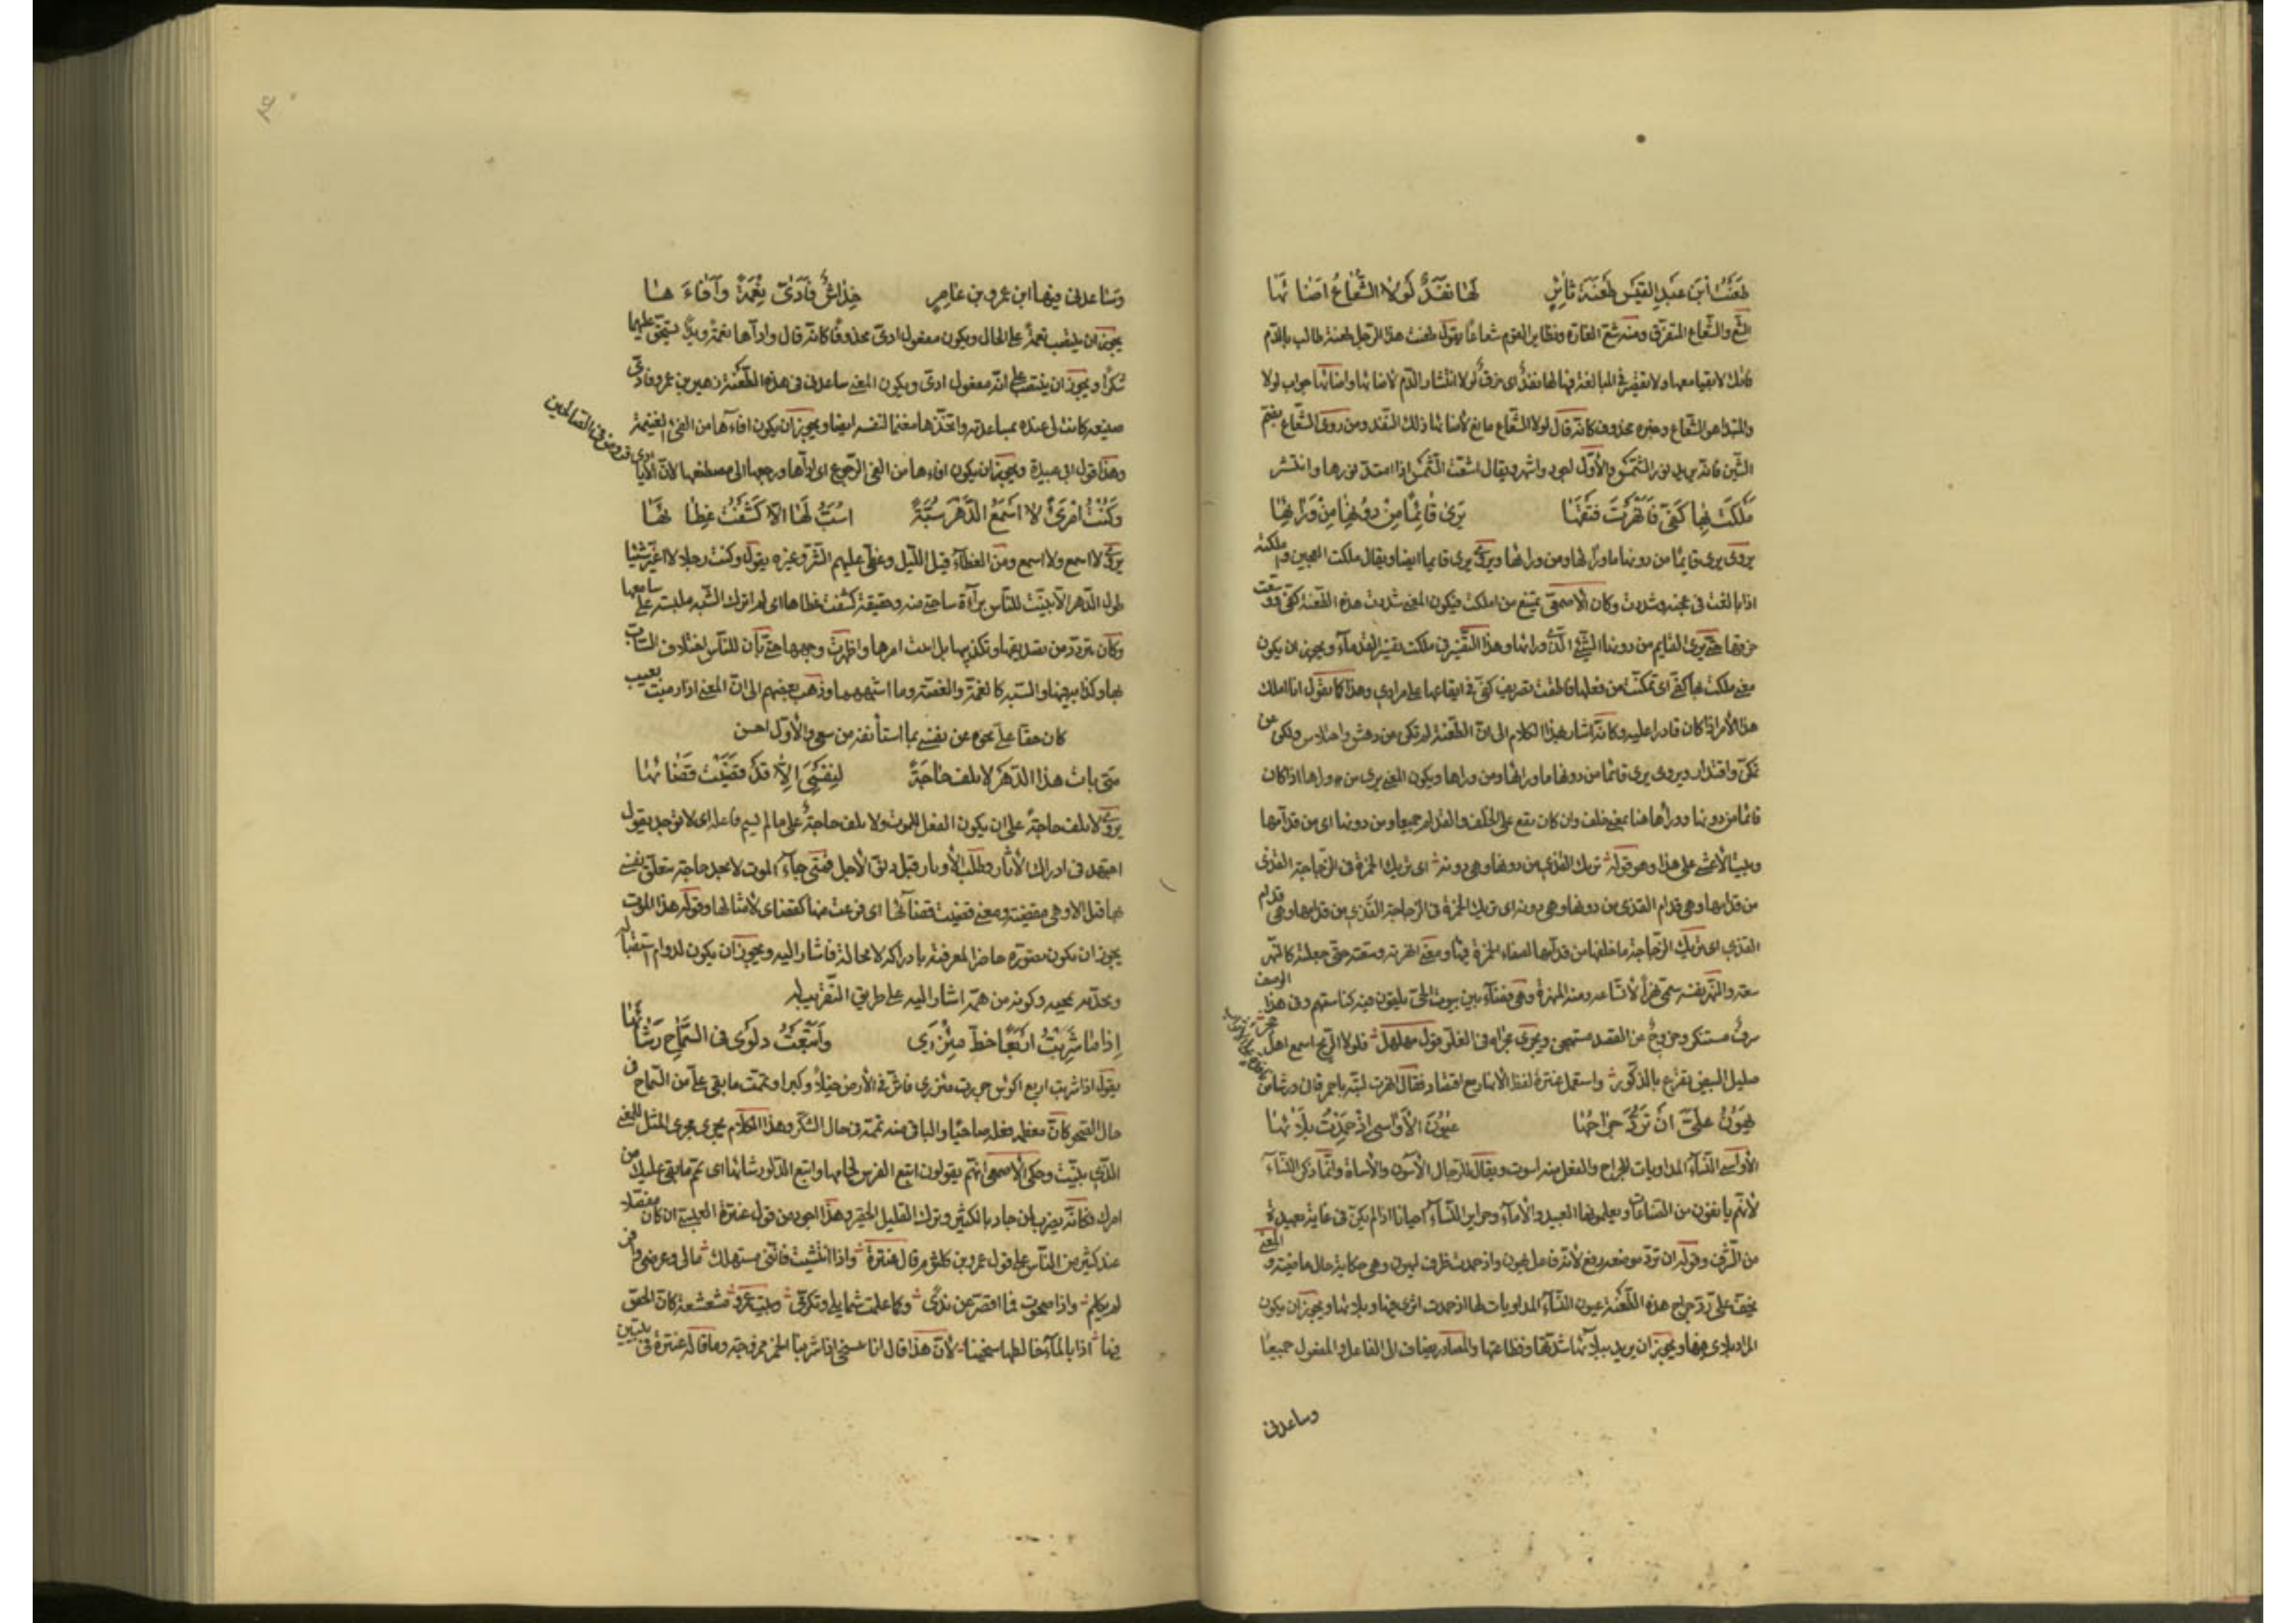 طَعَنْتُ ابْنَ عَبْدِ القَيْسِ طَعْنَةَ ثَائِرٍ لَهَا نَفَذٌ لَوْلَا الشُّعَاعُ اَضَائَهَا
الشّع والشّعاع المتفرّق ومنه شعّ الغارة وتطاير القوم شعاعًا يقول طعنت هذا الرّجل طعنة طالب بالدّم
لولا انتشار الدّم لاضائها واضائها جواب لولا
والمبتدا هو الشّعاع وخبره محذوف كانّه قال لولا الشّعاع مانع لأضائها ذلك النّفذ ومن روى الشّعاع بضمّ
الشّين فانّه يريد نور الشّمس والأوّل اجود واشهر ويقال اشعّت الشّمس اذا امتدّ نورها وانتشر
مَلَكْتُ بِهَا كَفّي فَاَنْهَرْتُ فَتْقَهَا يَرَى قَائِمًا مِنْ دُونِهَا مِنْ وَرَائِهَا
يروى يرى قائمًا من دونها ماورائها ومن ورائها ويروى يرى قائما ايضا ويقال ملكت العجين وأملكته
اذا بالغت فى عجنه وشددت وكان الأصمعى يمتنع من املكت فيكون المعنى شددت هذه الطّعنة كفّى ووسّعت
خرقها حتّى يرى القايم من دونها الشّىء الّذى وراءها وهذا التّفسير فى ملكت تفسير القدماء ويجوز ان يكون
معنى ملكت بها كفّى اى تمكّنت من فعلها فاطقت تصريف كفّى فى ايقاعها على مرادى وهذا كما يقول انا املك
هذا الأمر اذا كان قادرا عليه وكانّه اشار بهذا الكلام الى انّ الطّعنة لم تكن عن دهش واختلاس ولكن عن
تمكّن واقتدار ويروى يرى قائما من دونها ماورائها ومن وراها ويكون المعنى يرى من وراها اذا كان
قائما من دونها ووراها هاهنا بمعنى خلف وان كان يقع على الخلف والقدام جميعا ومن دونها اى من قدّامها
وبيت الأعشى على هذا وهو قوله تريك القذى من دونها وهى دونه اى تريك الخمرة فى الزّجاجة القذى
من قدّامها وهى قدام القذى من دونها وهى دونه اى تريك الخمرة فى الزّجاجة القذى من قدّامها وهى قدام
القذى اى تريك الزّجاجة ماخلفها من قدّامها لصفاء الخمرة فيها ومعنى انهرته وسّعته حتّى جعلته كالنّهر
سعة والنّهر نفسه سمّى نهرًا لاتّساعه ومنه المنهرة وهى فضاء بين بيوت الحىّ يلقون فيه كناستهم وفى هذا الوصف
سرف مستنكر وخروج عن القصد مستهجن ويجرى مجراه فى الغلوّ قول مهلهل فلولا الرّيح اسمع اهل حجر
صليل البيض تقرع بالذّكور
يَهُونُ عَلَىَّ اَنْ تَرُدَّ جِرَاحُهَا عُيُونَ الأَوَاسِى اِذْ حَمِدْتُ بَلَائَهَا
الأواسى النّساء المداويات للجراح والفعل منه اسوت ويقال للرّجال الآسون والأساة وانّما ذكر النّساء
لأنّهم يانفون من الصّناعات ويعلمونها العبيد والأماء وحراير النّساء احيانا اذا لم يكنّ فى غاية بعيدة
من الشّرف وقوله ان تردّ موضعه رفع لأنّه فاعل يهون واذ حمدت ظرف ليهون وهى حكاية حال ماضية والمعنى
يخفّ على ردّ جراح هذه الطّعنة عيون النّساء المداويات لها اذ حمدت اثرى فيها وبلائها ويجوز ان يكون
المراد بلاءى فيها ويجوز ان يريد ببلائها شدّتها وفظاعتها والمصادر يضاف الى الفاعل والمفعول جميعا
وساعدنى
وَسَاعَدَنى فيها ابن عمرو بن عَامِرٍ خِدَاشٌ فَاَدَّىٰ نِعْمَةً وَاَفَاءَهَا
يجوز ان ينتصب نعمة على الحال ويكون مفعول ادّى محذوفًا كانّه قال وادّاها نعمة ويدًا يستحقّ عليها
شكرًا ويجوز ان ينتصب على انّه مفعول ادّى ويكون المعنى ساعدنى فى هذه الطّعنة زهير بن عمرو فادّى
صنيعة كانت لى عنده بمساعدته واتّخذها مغنما لنفسه ايضا ويجوز ان يكون افاءها من الفىء الغنيمة
وهذا قول ابى عبيدة ويجوز ان يكون افاءها من الفىء الرّجوع اى ادّاها ورجعها الى مصطنعها لانّ الأيا
وَكُنْتُ امْرَءً لَا اَسْمَعُ الدَّهْرَ سُبَّةً اُسَبُّ بِهَا اِلَّا كَشَفْتُ غِطَائَهَا
يروى لا اسمع ولا اسمع ومن الغطاء قيل اللّيل وغطّى عليهم الشّرّ وغيره يقول وكنت رجلا لا اعيّر شيئا
طول الدّهر الّا بيّنت للنّاس براءة ساحتى منه وحقيقة كشفت غطاها اى لم اترك الشّبه ملبسة على سامعها
وكان يتردّد من تصديقها وتكذيبها بل ابنت امرها واظهرت وجهها حتّى بان للنّاس اختلاف السّابّ
وذهب بعضهم الى انّ المعنى اذا رميت بعيب
كان حقّا علىّ محوه عن نفسى بما استأنفه من سعى والأوّل احسن
مَتَى يَأتِ هٰذَا الدَّهْرُ لَا يُلْفِ حَاجَةً لِنَفْسِىَ اِلَّا قَدْ قَضَيْتُ قَضَائَهَا
يروى لا يلف حاجة على ان يكون الفعل للموت ولا يلف حاجة على ما لم يسمّ فاعله اى لا توجد يقول
اجتهد فى ادراك الأثار وطلب الأوتار قبل دنوّ الأجل فمتى جاء الموت لا يجد حاجة يتعلّق بنفسى
بها قبل الا وهى مقضيّة ومعنى قضيت قضاءها اى فرغت منها كقضاى لأمثالها وقوله هذا الموت
يجوز ان يكون بتصوّره حاضرا لمعرفته بادراكه لا محالة فاشار اليه ويجوز ان يكون لدوام استقباله
وتحدّيه بمجيه وكونه من همّه اشار اليه على طريق التّقريب له
اِذَا مَا شَرِبْتُ اَرْبَعًا خَطَّ مِئْزَرِى وَاَتْبَعْتُ دَلْوِى فى السَّمَاحِ رِشَائَهَا
يقول اذا شربت اربع اكؤس جررت مئزرى فاثّر فى الأرض خيلاءً وكبرا وتممت مابقى علىّ من السّماح فى
حال الصّحو كانّ معظمه فعله صاحيًا والباقى منه تمّمه فى حال السّكر وهذا الكلام يجرى مجرى المثل للمعنى
الّذى بيّنت وحكى الأصمعى انّهم يقولون اتبع الفرس لجامها واتبع الدّلو رشائها اى تمّم مابقى عليك من
امرك فكانّه يضرب لمن جاد بالكثير وترك القليل الحقير وهذا اجود من قول عنترة العبسى ان كان مفضّلا
عند كثير من النّاس على قول عمرو بن كلثوم قال عنترة واذا انتشيت فانّنى مستهلك مالى وعرضى وافر
لم يكلم واذا صحوت فما اقصّر عن ندًى وكما علمت شمايلى وتكرّمى وبيت عمرو مشعشعة كانّ الحصّ
فيها اذا ما الماء خالطها سخينا لأنّ هذا قال انا سخى اذا شربنا الخمر ممزوجة وما قاله عنترة فى بيتين